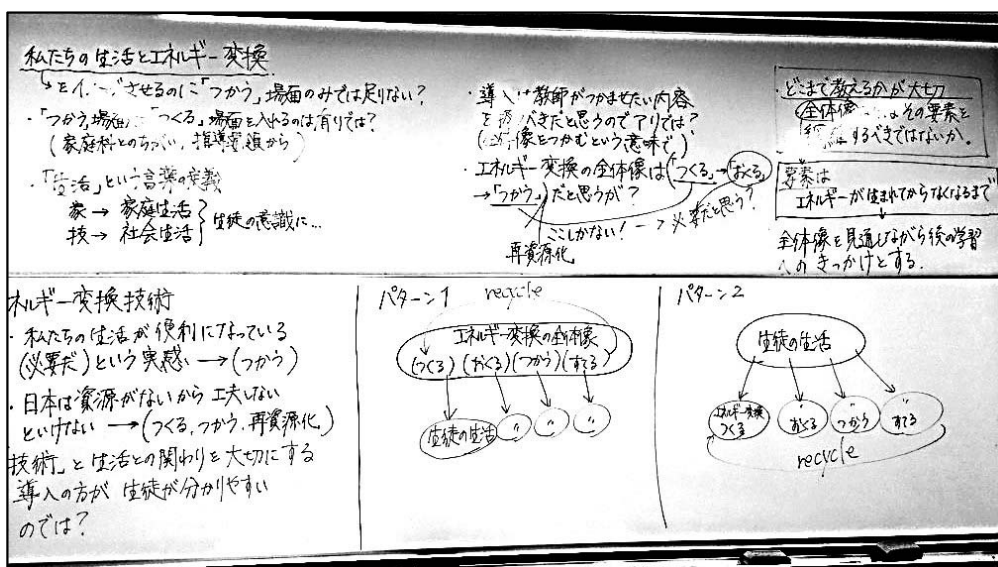 私たちの生活とエネルギー変換
↳ させるのに「つかう」場面のみでは足りない？
・「つかう」場面に「つくる」場面を入れるのは有りでは？
(家庭科とのちがい, 指導要領から)
・「生活」という言葉の定義
家 → 家庭生活
技 → 社会生活
生徒の意識に…
・導入は教師がつかませたい内容
を べきだと思うのでアリでは？
(全体像をつかむという意味で)
・エネルギー変換の全体像は(「つくる」→「おくる」
→「つかう」)だと思うが？
ここしかない！ → 必要だと思う？
再資源化
・どこまで教えるかが大切
全体像 その要素を
するべきではないか。
要素は
エネルギーが生まれてからなくなるまで
全体像を見通しながら後の学習
へのきっかけとする.
ネルギー変換技術
・私たちの生活が便利になっている
(必要だ)という実感 → (つかう)
・日本は資源がないから工夫しない
といけない → (つくる, つかう, 再資源化)
技術」と生活との関わりを大切にする
導入の方が 生徒が分かりやすい
のでは？
パターン1
recycle
エネルギー変換の全体像
(つくる) (おくる) (つかう) (すてる)
生徒の生活 〃 〃 〃
パターン2
生徒の生活
エネルギー変換
つくる
〃
おくる
〃
つかう
〃
すてる
recycle